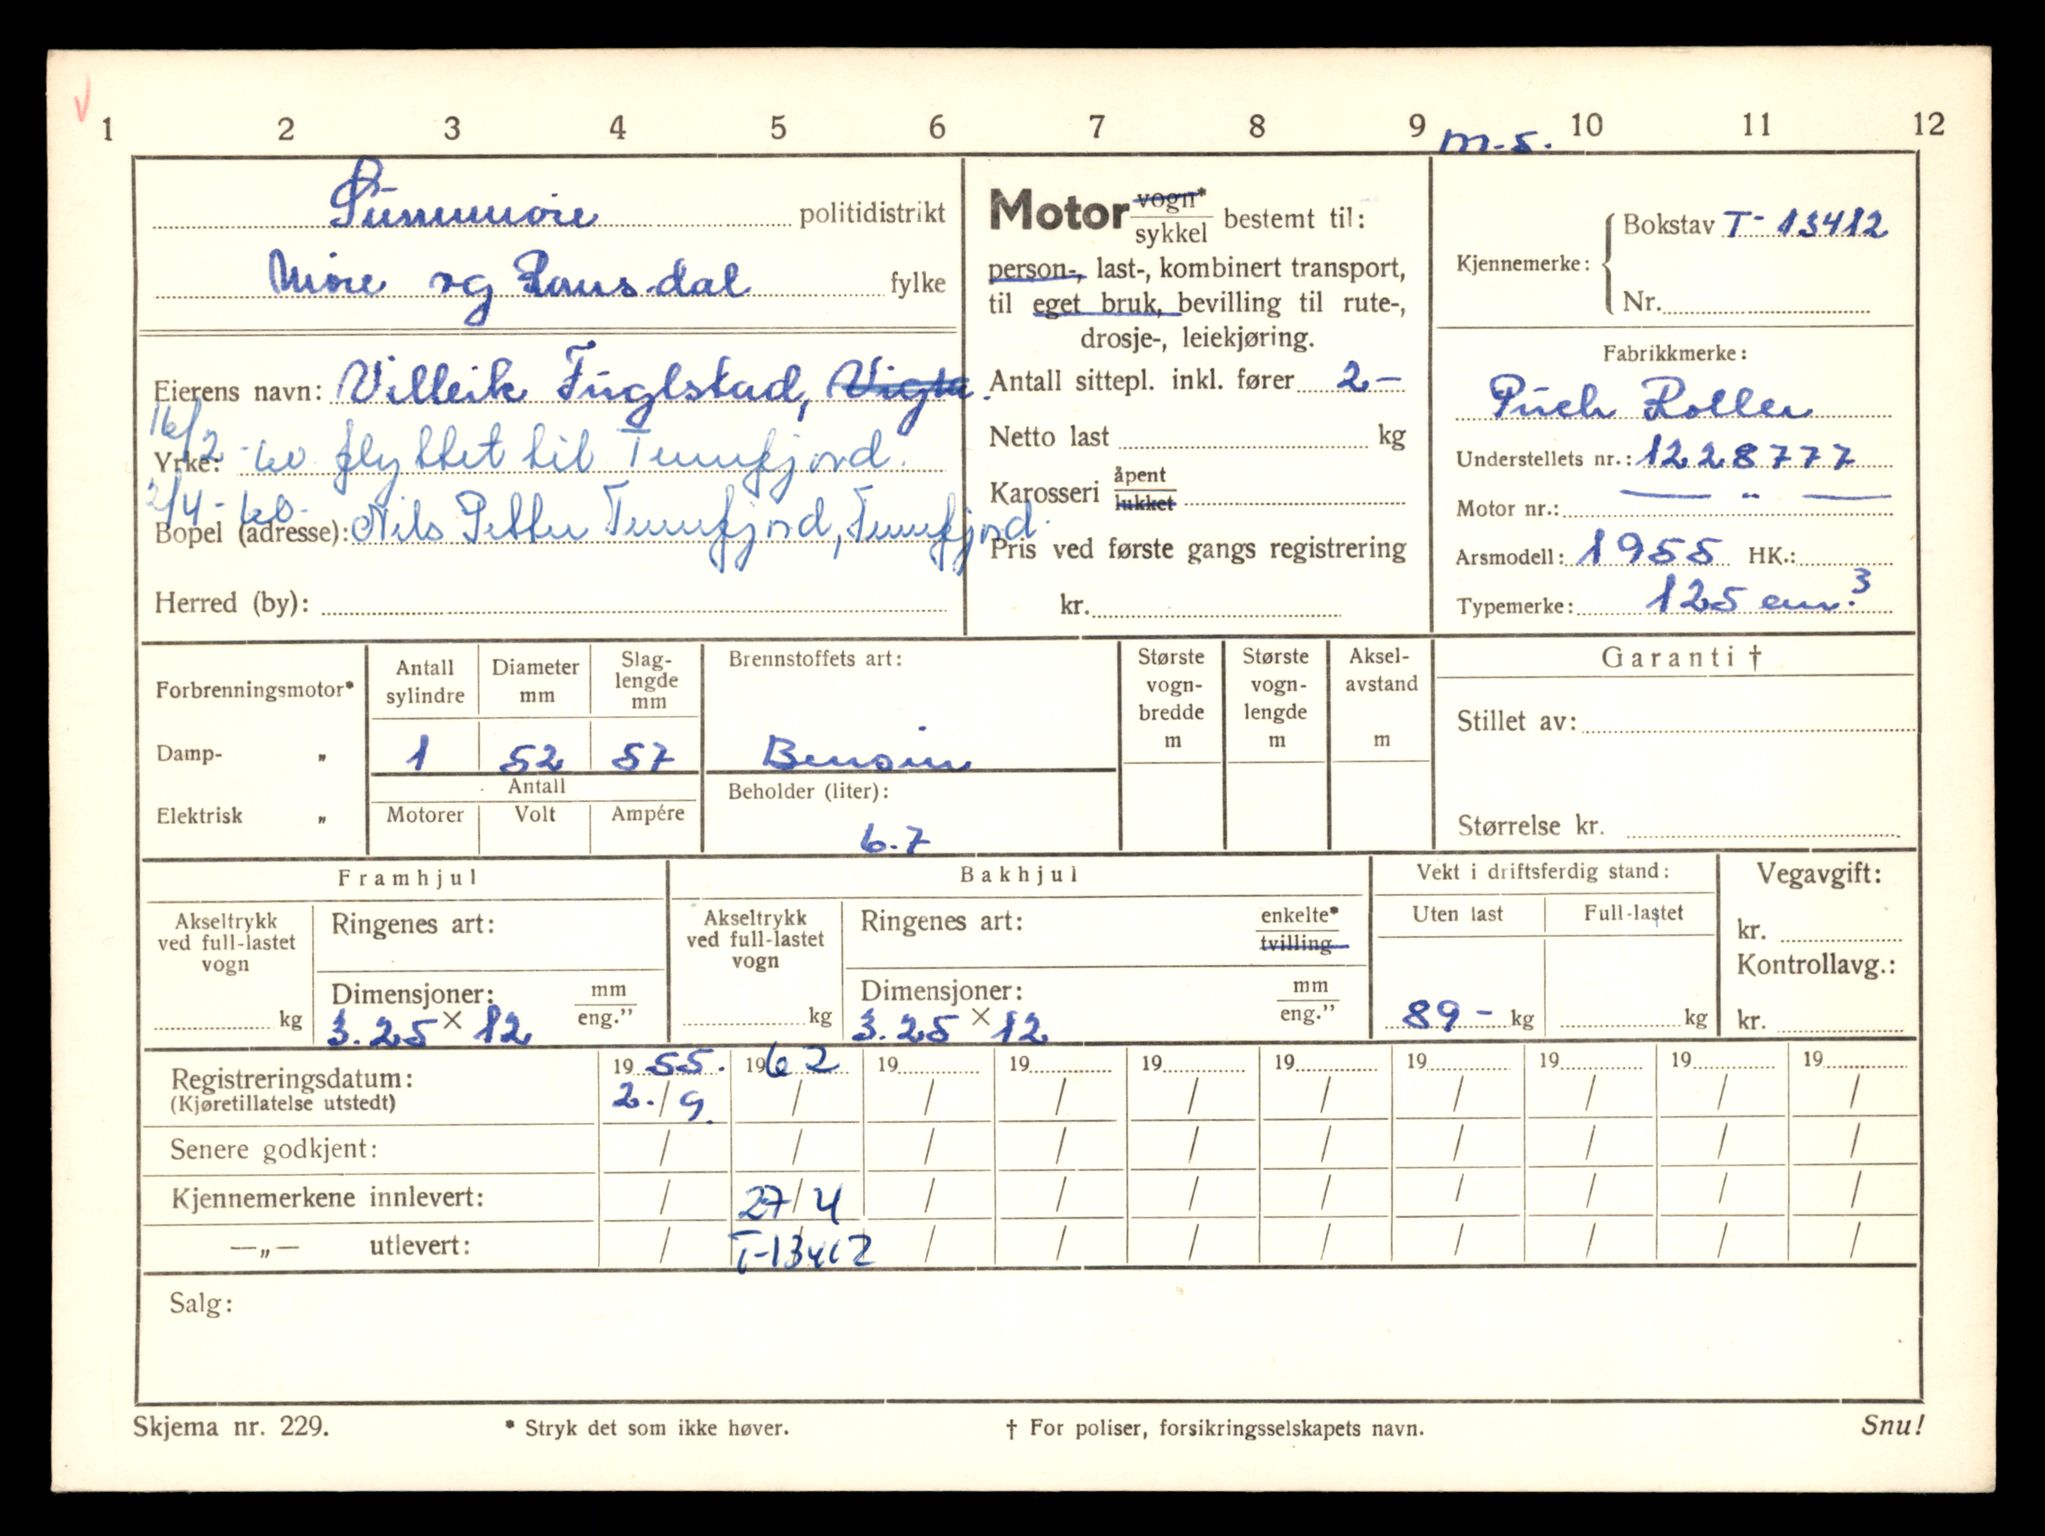 1 2 3 4 5 6 7 8 9 10 11 12
m-s.
Sunnmøre politidistrikt
Møre og Romsdal fylke
Eierens navn: Villeik Fuglstad, Vigra.
16/2-60 flyttet til Tennfjord.
Yrke:
2/4-60. Nils Petter Tennfjord, Tennfjord.
Bopel (adresse):
Herred (by):
Motor vogn* / sykkel bestemt til:
person-, last-, kombinert transport,
til eget bruk, bevilling til rute-,
drosje-, leiekjøring.
Antall sittepl. inkl. fører 2-
Netto last kg
Karosseri åpent / lukket
Pris ved første gangs registrering
kr.
Kjennemerke: Bokstav T- 13412
Nr.
Fabrikkmerke:
Puch Roller
Understellets nr.: 1228777
Motor nr.: — " —
Arsmodell: 1955 HK.:
Typemerke: 125 cm.³
Forbrenningsmotor*
Damp- „
Elektrisk „
Antall sylindre
Diameter mm
Slag-lengde mm
1 52 57
Antall
Motorer Volt Ampére
Brennstoffets art:
Bensin
Beholder (liter):
6.7
Største vogn-bredde m
Største vogn-lengde m
Aksel-avstand m
Garanti †
Stillet av:
Størrelse kr.
Framhjul
Akseltrykk ved full-lastet vogn
kg
Ringenes art:
Dimensjoner: mm / eng.”
3.25 × 12
Bakhjul
Akseltrykk ved full-lastet vogn
kg
Ringenes art: enkelte* / tvilling
Dimensjoner: mm / eng.”
3.25 × 12
Vekt i driftsferdig stand:
Uten last Full-lastet
89- kg kg
Vegavgift:
kr.
Kontrollavg.:
kr.
19 55. 19 62 19 19 19 19 19 19 19 19
Registreringsdatum: 2./9. / / / / / / / / /
(Kjøretillatelse utstedt)
Senere godkjent: / / / / / / / / / /
Kjennemerkene innlevert: / 27/4 / / / / / / / /
—„— utlevert: / T-13412 / / / / / / / /
Salg:
Skjema nr. 229. * Stryk det som ikke høver. † For poliser, forsikringsselskapets navn. Snu!